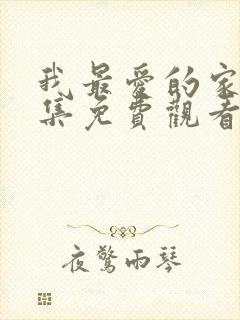 我最愛的家
集免費觀看
夜驚雨琴